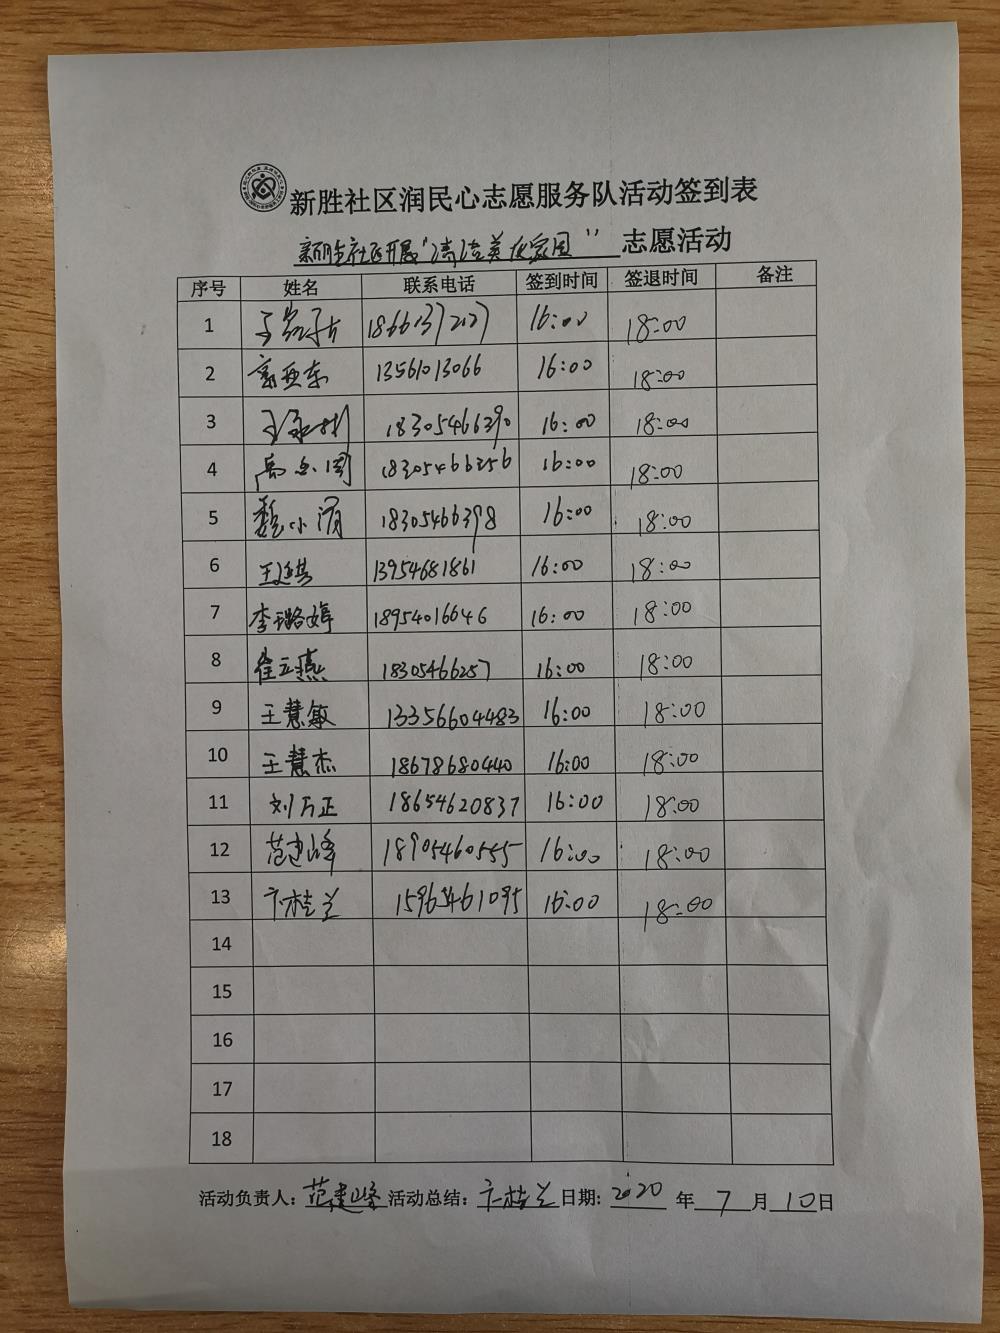 新胜社区润民心志愿服务队活动签到表
新胜社区开展“清洁美化家园” 志愿活动
序号 姓名 联系电话 签到时间 签退时间 备注
1 18661372127 16:00 18:00
2 13561013066 16:00 18:00
3 18305466390 16:00 18:00
4 18305466356 16:00 18:00
5 魏小清 18305466398 16:00 18:00
6 王延琪 13954681861 16:00 18:00
7 李璐婷 18954016646 16:00 18:00
8 崔立燕 18305466257 16:00 18:00
9 王慧敏 13356604483 16:00 18:00
10 王慧杰 18678680440 16:00 18:00
11 刘万正 18654620837 16:00 18:00
12 范建峰 18905460555 16:00 18:00
13 卞桂兰 15963461095 16:00 18:00
14
15
16
17
18
活动负责人: 范建峰 活动总结: 卞桂兰 日期: 2020 年 7 月 10 日